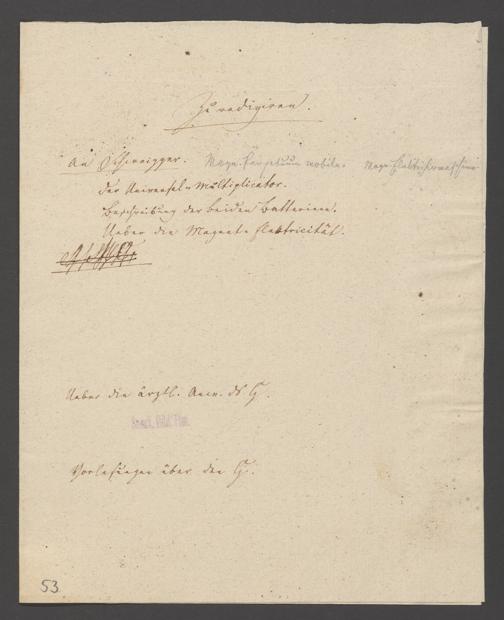 Zu redigiren.
An Schweigger. Magn. Perpetuum mobile. Magn. Elektrisirmaschine.
Der Universal-Multiplicator.
Beschreibung der beiden Batterieen.
Ueber die Magneto-Elektricität.
Ueber die ärztl. Anw. ds G.
Vorlesungen über den G.
53